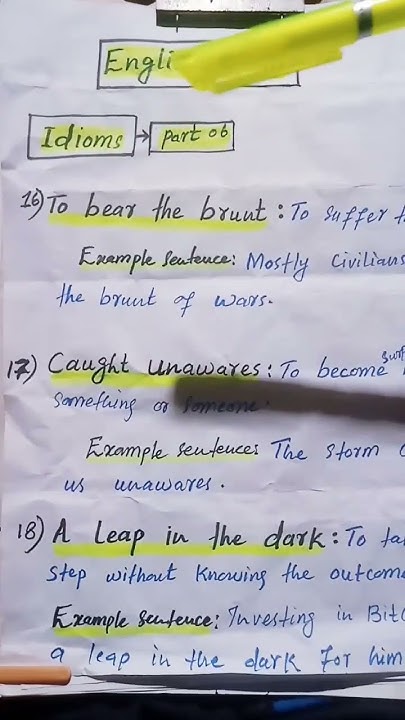 Engli
Idioms → Part 06
16) To bear the brunt : To suffer
Example sentence: Mostly Civilians
the brunt of wars.
17) Caught unawares : To become
something or someone.
Example sentence: The storm
us unawares.
18) A leap in the dark : To
step without knowing the outcome
Example sentence: Investing in
a leap in the dark for him